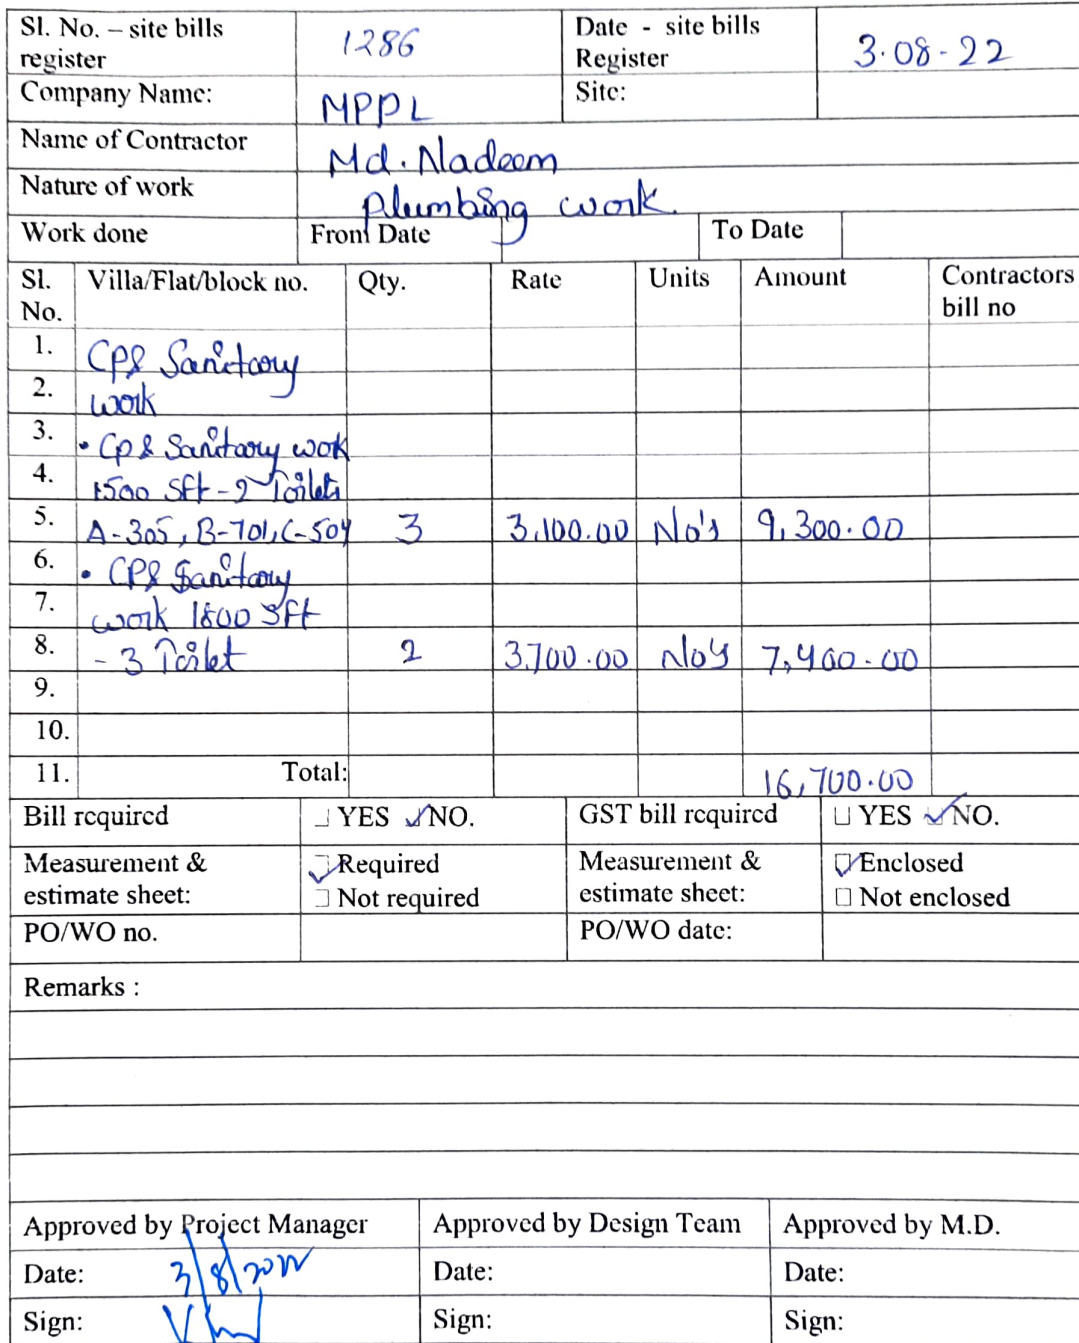 Sl. No. – site bills register 1286 Date - site bills Register 3.08-22
Company Name: MPPL Site:
Name of Contractor Md. Nadeem
Nature of work Plumbing work.
Work done From Date To Date
Sl. No. Villa/Flat/block no. Qty. Rate Units Amount Contractors bill no
1. CP& Sanitary
2. work
3. • CP & Sanitary work
4. 1500 Sft - 2 Toilets
5. A-305, B-701, C-504 3 3,100.00 No's 9,300.00
6. • CP& Sanitary
7. work 1800 Sft
8. - 3 Toilet 2 3,700.00 No's 7,400.00
9.
10.
11. Total: 16,700.00
Bill required YES ✓NO. GST bill required YES ✓NO.
Measurement & estimate sheet: ✓Required Measurement & estimate sheet: ✓Enclosed
Not required Not enclosed
PO/WO no. PO/WO date:
Remarks :
Approved by Project Manager Approved by Design Team Approved by M.D.
Date: 3/8/2022 Date: Date:
Sign: Sign: Sign: